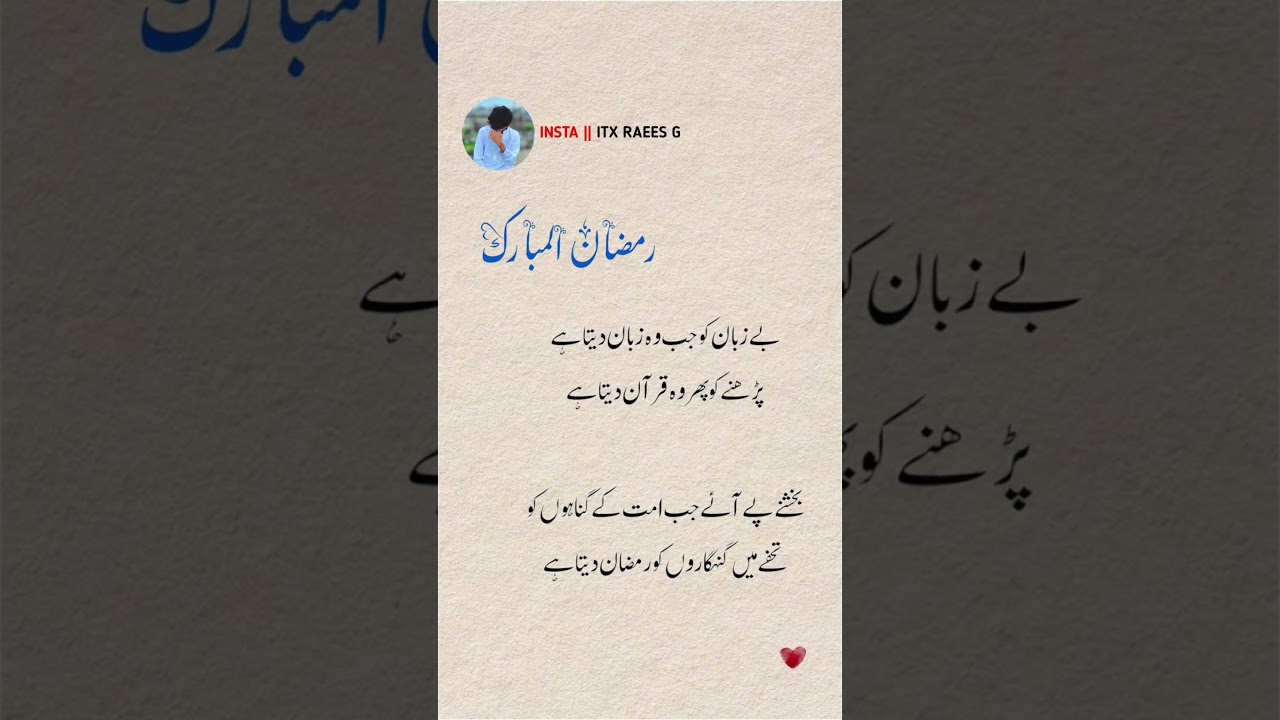 INSTA || ITX RAEES G
رمضان المبارک
بے زبان کو جب وہ زبان دیتا ہے
پڑھنے کو پھر وہ قرآن دیتا ہے
بخشنے پے آئے جب امت کے گناہوں کو
تحفے میں گنہگاروں کو رمضان دیتا ہے